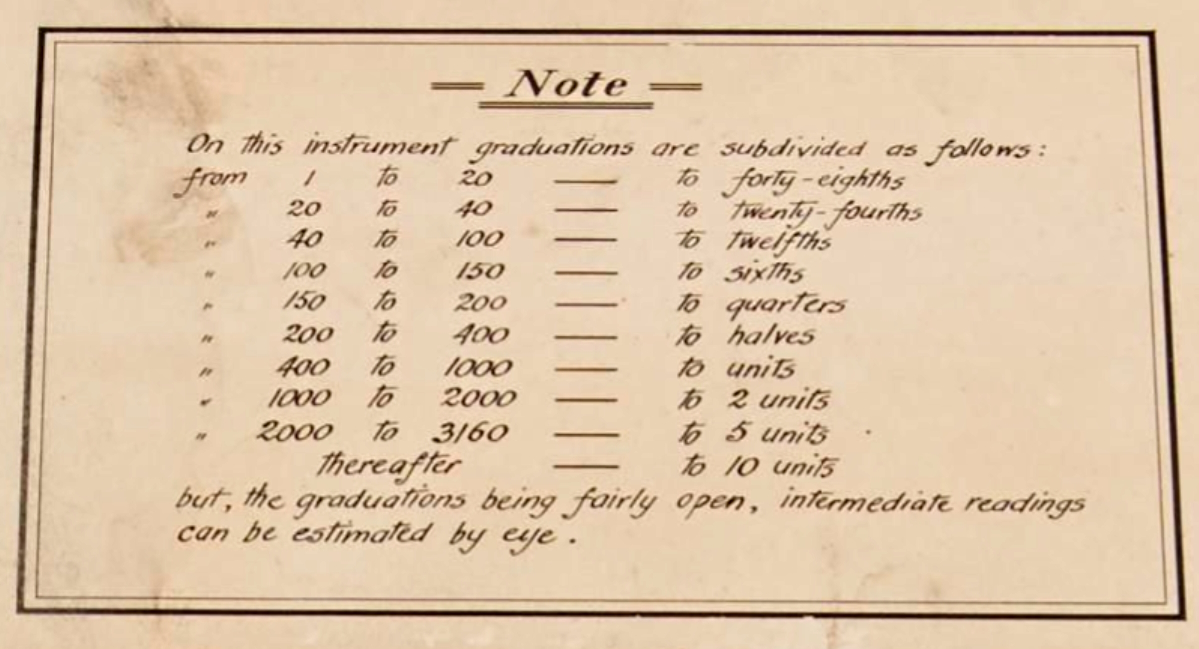 Note
On this instrument graduations are subdivided as follows:
from 1 to 20 — to forty-eighths
" 20 to 40 — to twenty-fourths
" 40 to 100 — to twelfths
" 100 to 150 — to sixths
" 150 to 200 — to quarters
" 200 to 400 — to halves
" 400 to 1000 — to units
" 1000 to 2000 — to 2 units
" 2000 to 3160 — to 5 units
thereafter — to 10 units
but, the graduations being fairly open, intermediate readings
can be estimated by eye.